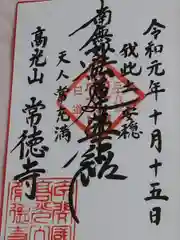 令和元年十月十五日
我此土安穏
南無妙法蓮華経
天人常充満
高光山
常徳寺